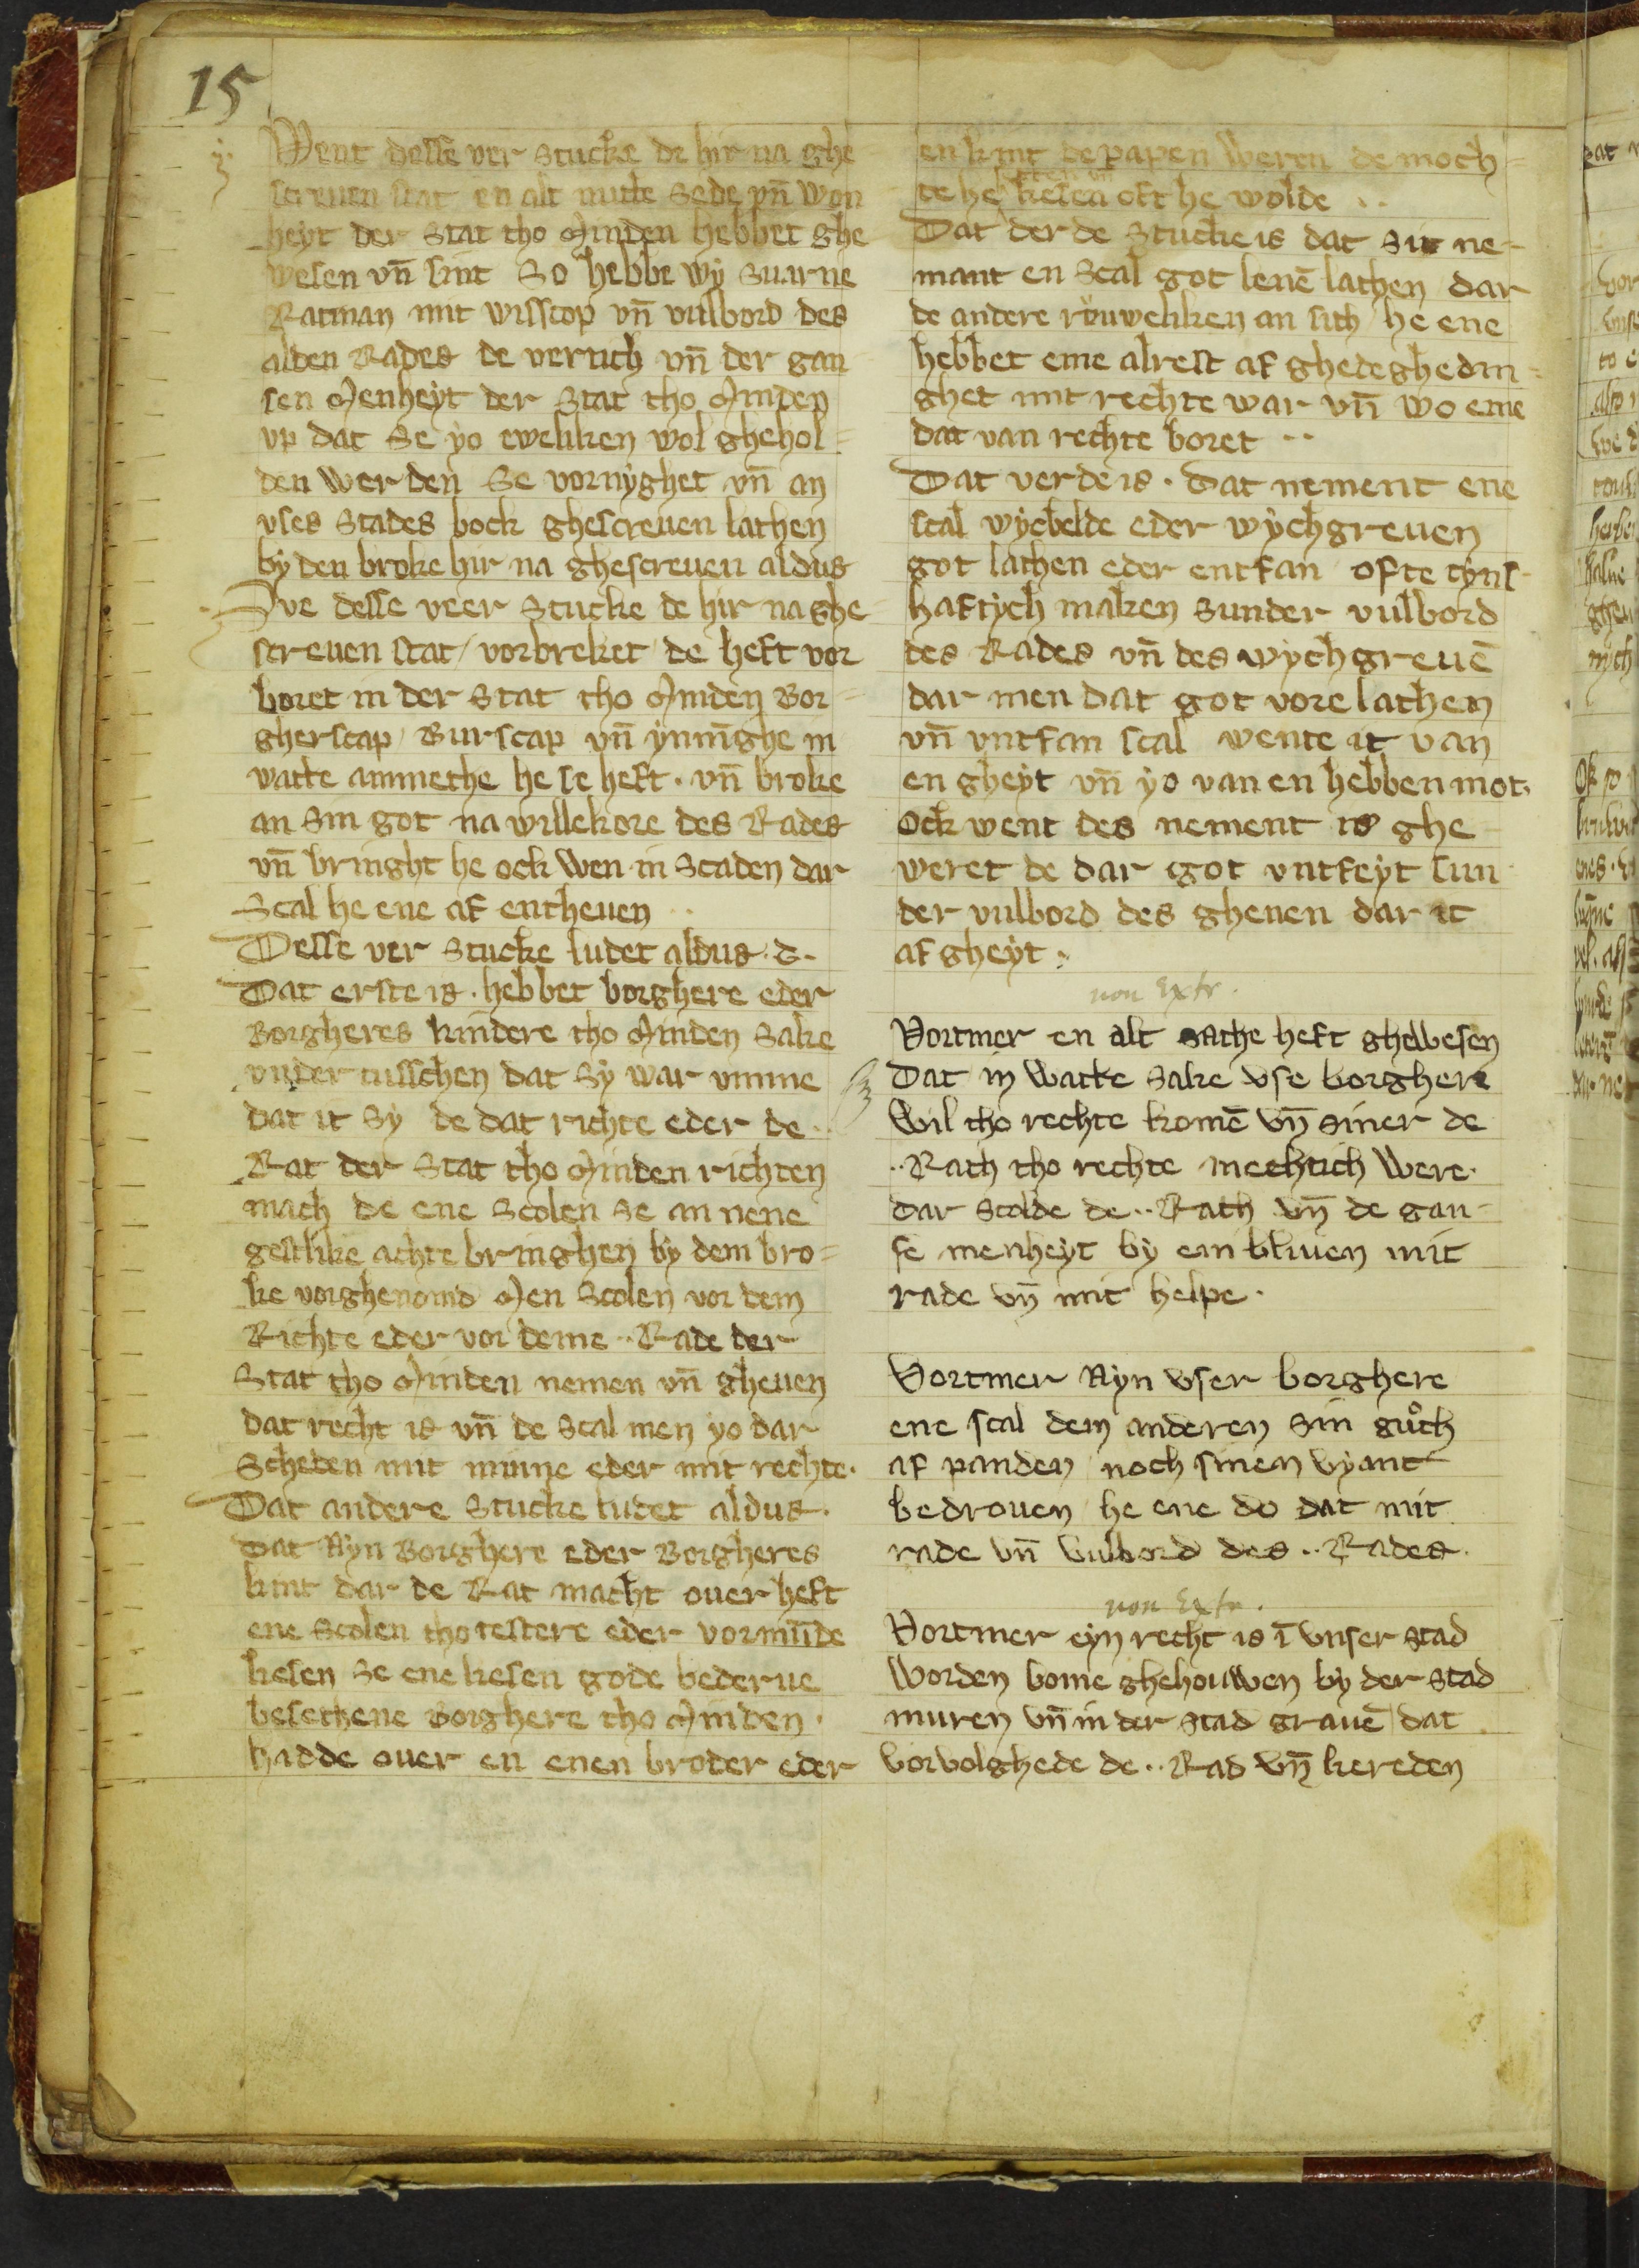 15
Went desse ver Stucke de hir na ghe
screuen stat en alt nutte Sede vn̄ Won
heyt der Stat tho Minden hebbet ghe
wesen vn̄ sint So hebbe wy Suurne
Ratman mit wisscop vn̄ vulbord des
alden Rades de vertich vn̄ der gan
sen Menheyt der Stat tho Minden
vp dat Se yo eweliken wol ghehol=
den werden Se vornyghet vn̄ an
vses Stades bock ghescreuen lathen
by den broke hir na ghescreuen aldus
We desse veer Stucke de hir na ghe
screuen stat / vorbreket / de heft vor
boret in der Stat tho Minden Bor=
gherscap / Burscap vn̄ ynnīghe in
watte ammethe he se heft . vn̄ broke
an Sin got na willekore des Rades
vn̄ bringht he ock Wen in Scaden dar
Scal he ene af entheuen ..
Desse ver Stucke ludet aldus .
Dat erste is . hebbet borghere eder
Borgheres kindere tho Minden Sake
vnder tusschen dat Sy war vmme
dat it Sy de dat richte eder de ..
Rat der Stat tho Minden richten
mach de ene Scolen Se an nene
gestlike achte bringhen by dem bro=
ke vorghenomd Men Scolen vor dem
Richte eder vor deme .. Rade der
Stat tho Minden nemen vn̄ gheuen
dat recht is vn̄ de Scal men yo dar
Scheden mit minne eder mit rechte .
Dat andere Stucke ludet aldus .
Dat Nyn Borghere eder Borgheres
kint dar de Rat macht ouer heft
ene Scolen tho testere eder vormūde
kesen Se ene kesen gode bederue
besethene Borghere tho Minden .
hadde ouer en enen broder eder
en kint de papen weren de moch=
te he kesen oft he wolde ..
Dat derde Stucke is dat Sic ne=
mant en Scal got lenē lathen dar
de andere rouweliken an sith / he ene
hebbet eme alrest af ghedeghedin=
ghet mit rechte war vn̄ wo eme
dat van rechte boret ..
Dat verde is . Dat nement ene
scal wycbelde eder wychgreuen
got lathen eder entfan ofte tyns=
haftych maken Sunder vulbord
des Rades vn̄ des wychgreuē
dar men dat got vore lathen
vn̄ vntfan scal wente it van
en gheyt vn̄ yo van en hebben mot .
Ock went des nement is ghe
weret de dar got vntfeyt sun
der vulbord des ghenen dar it
af gheyt .
non Extr.
Vortmer en alt sathe heft ghewesen
Dat in Watte Sake vse borghere
Wil tho rechte komē vn̄ siner de
.. Rath tho rechte mechtich Were .
Dar Scolde de .. Rath vn̄ de gan=
se menheyt by em bliuen mit
rade vn̄ mit helpe .
Vortmer Nyn vser borghere
ene scal dem anderen Sin gůth
af panden / noch sinen vyant
bedrouen / he ene do dat mit
rade vn̄ vulbord des .. Rades .
non Extr.
Vortmer eyn recht is ī vnser Stad
Worden bome ghehouwen by der Stad
muren vn̄ in der Stad grauē / dat
vorvolghede de .. Rad vn̄ kereden